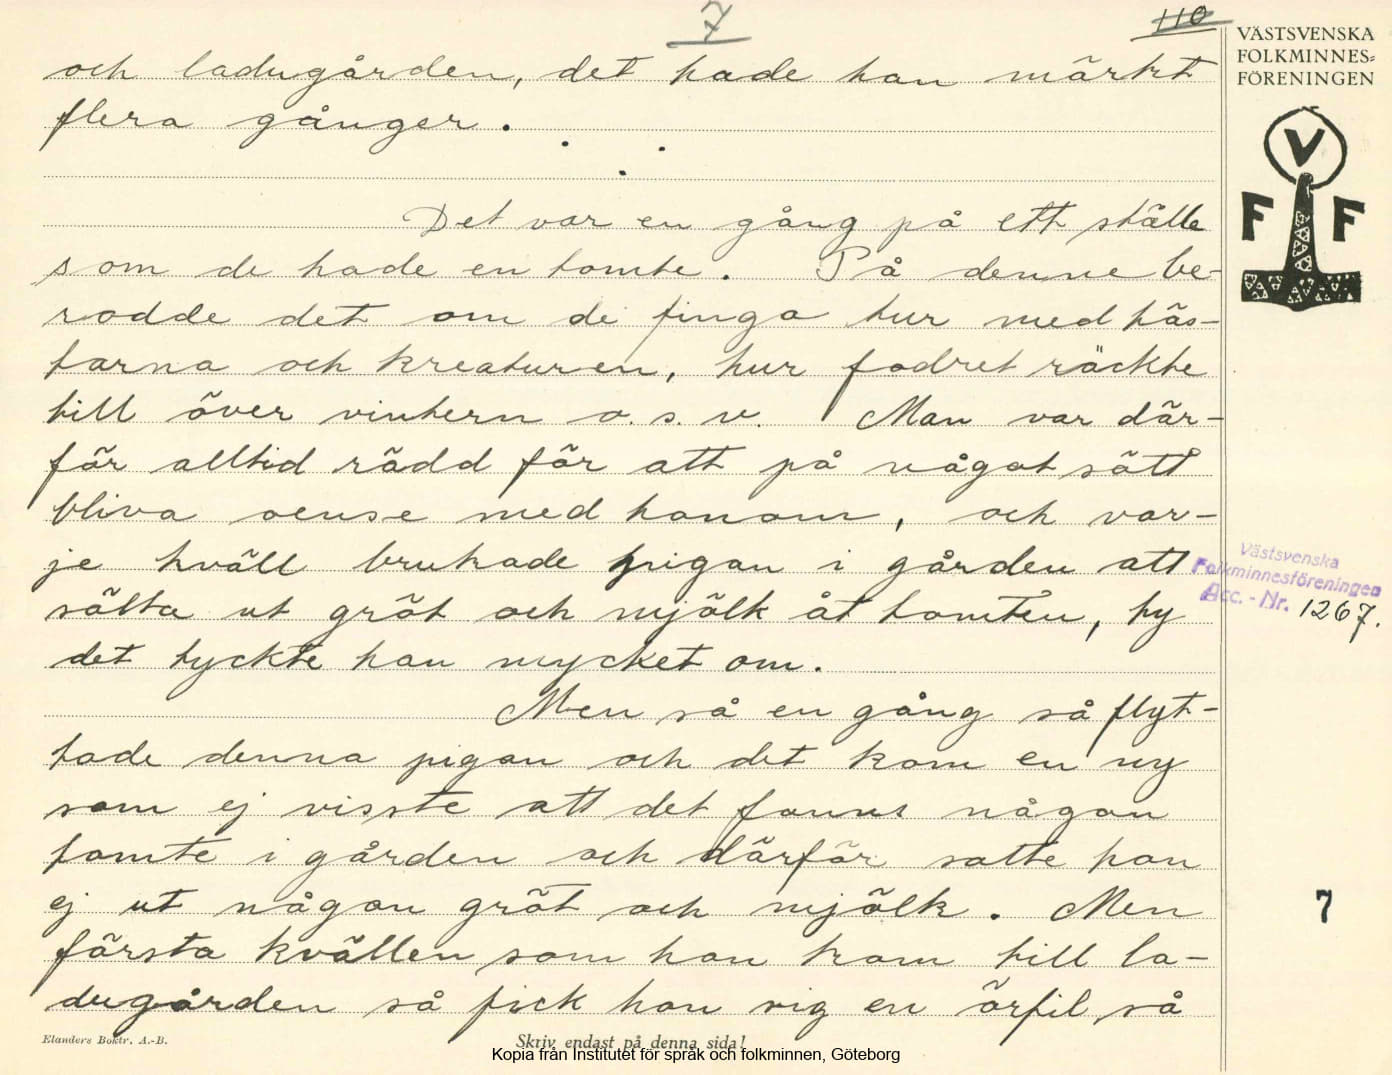 7
110
VÄSTSVENSKA
FOLKMINNES=
FÖRENINGEN
och ladugården, det hade han märkt
flera gånger.
Det var en gång på ett ställe
som de hade en tomte. På denne be-
rodde det om de finga tur med häs-
tarna och kreaturen, hur fodret räckte
till över vintern o. s. v. Man var där-
för alltid rädd för att på något sätt
bliva oense med honom, och var-
je kväll brukade pigan i gården att
sätta ut gröt och mjölk åt tomten, ty
det tyckte han mycket om.
Men så en gång så flyt-
tade denna pigan och det kom en ny
som ej visste att det fanns någon
tomte i gården och därför satte hon
ej ut någon gröt och mjölk. Men
första kvällen som hon kom till la-
dugården så fick hon sig en örfil så
V
F F
Västsvenska
Folkminnesföreningen
Acc. - Nr. 1267.
7
Elanders Boktr. A.-B.
Skriv endast på denna sida!
Kopia från Institutet för språk och folkminnen, Göteborg